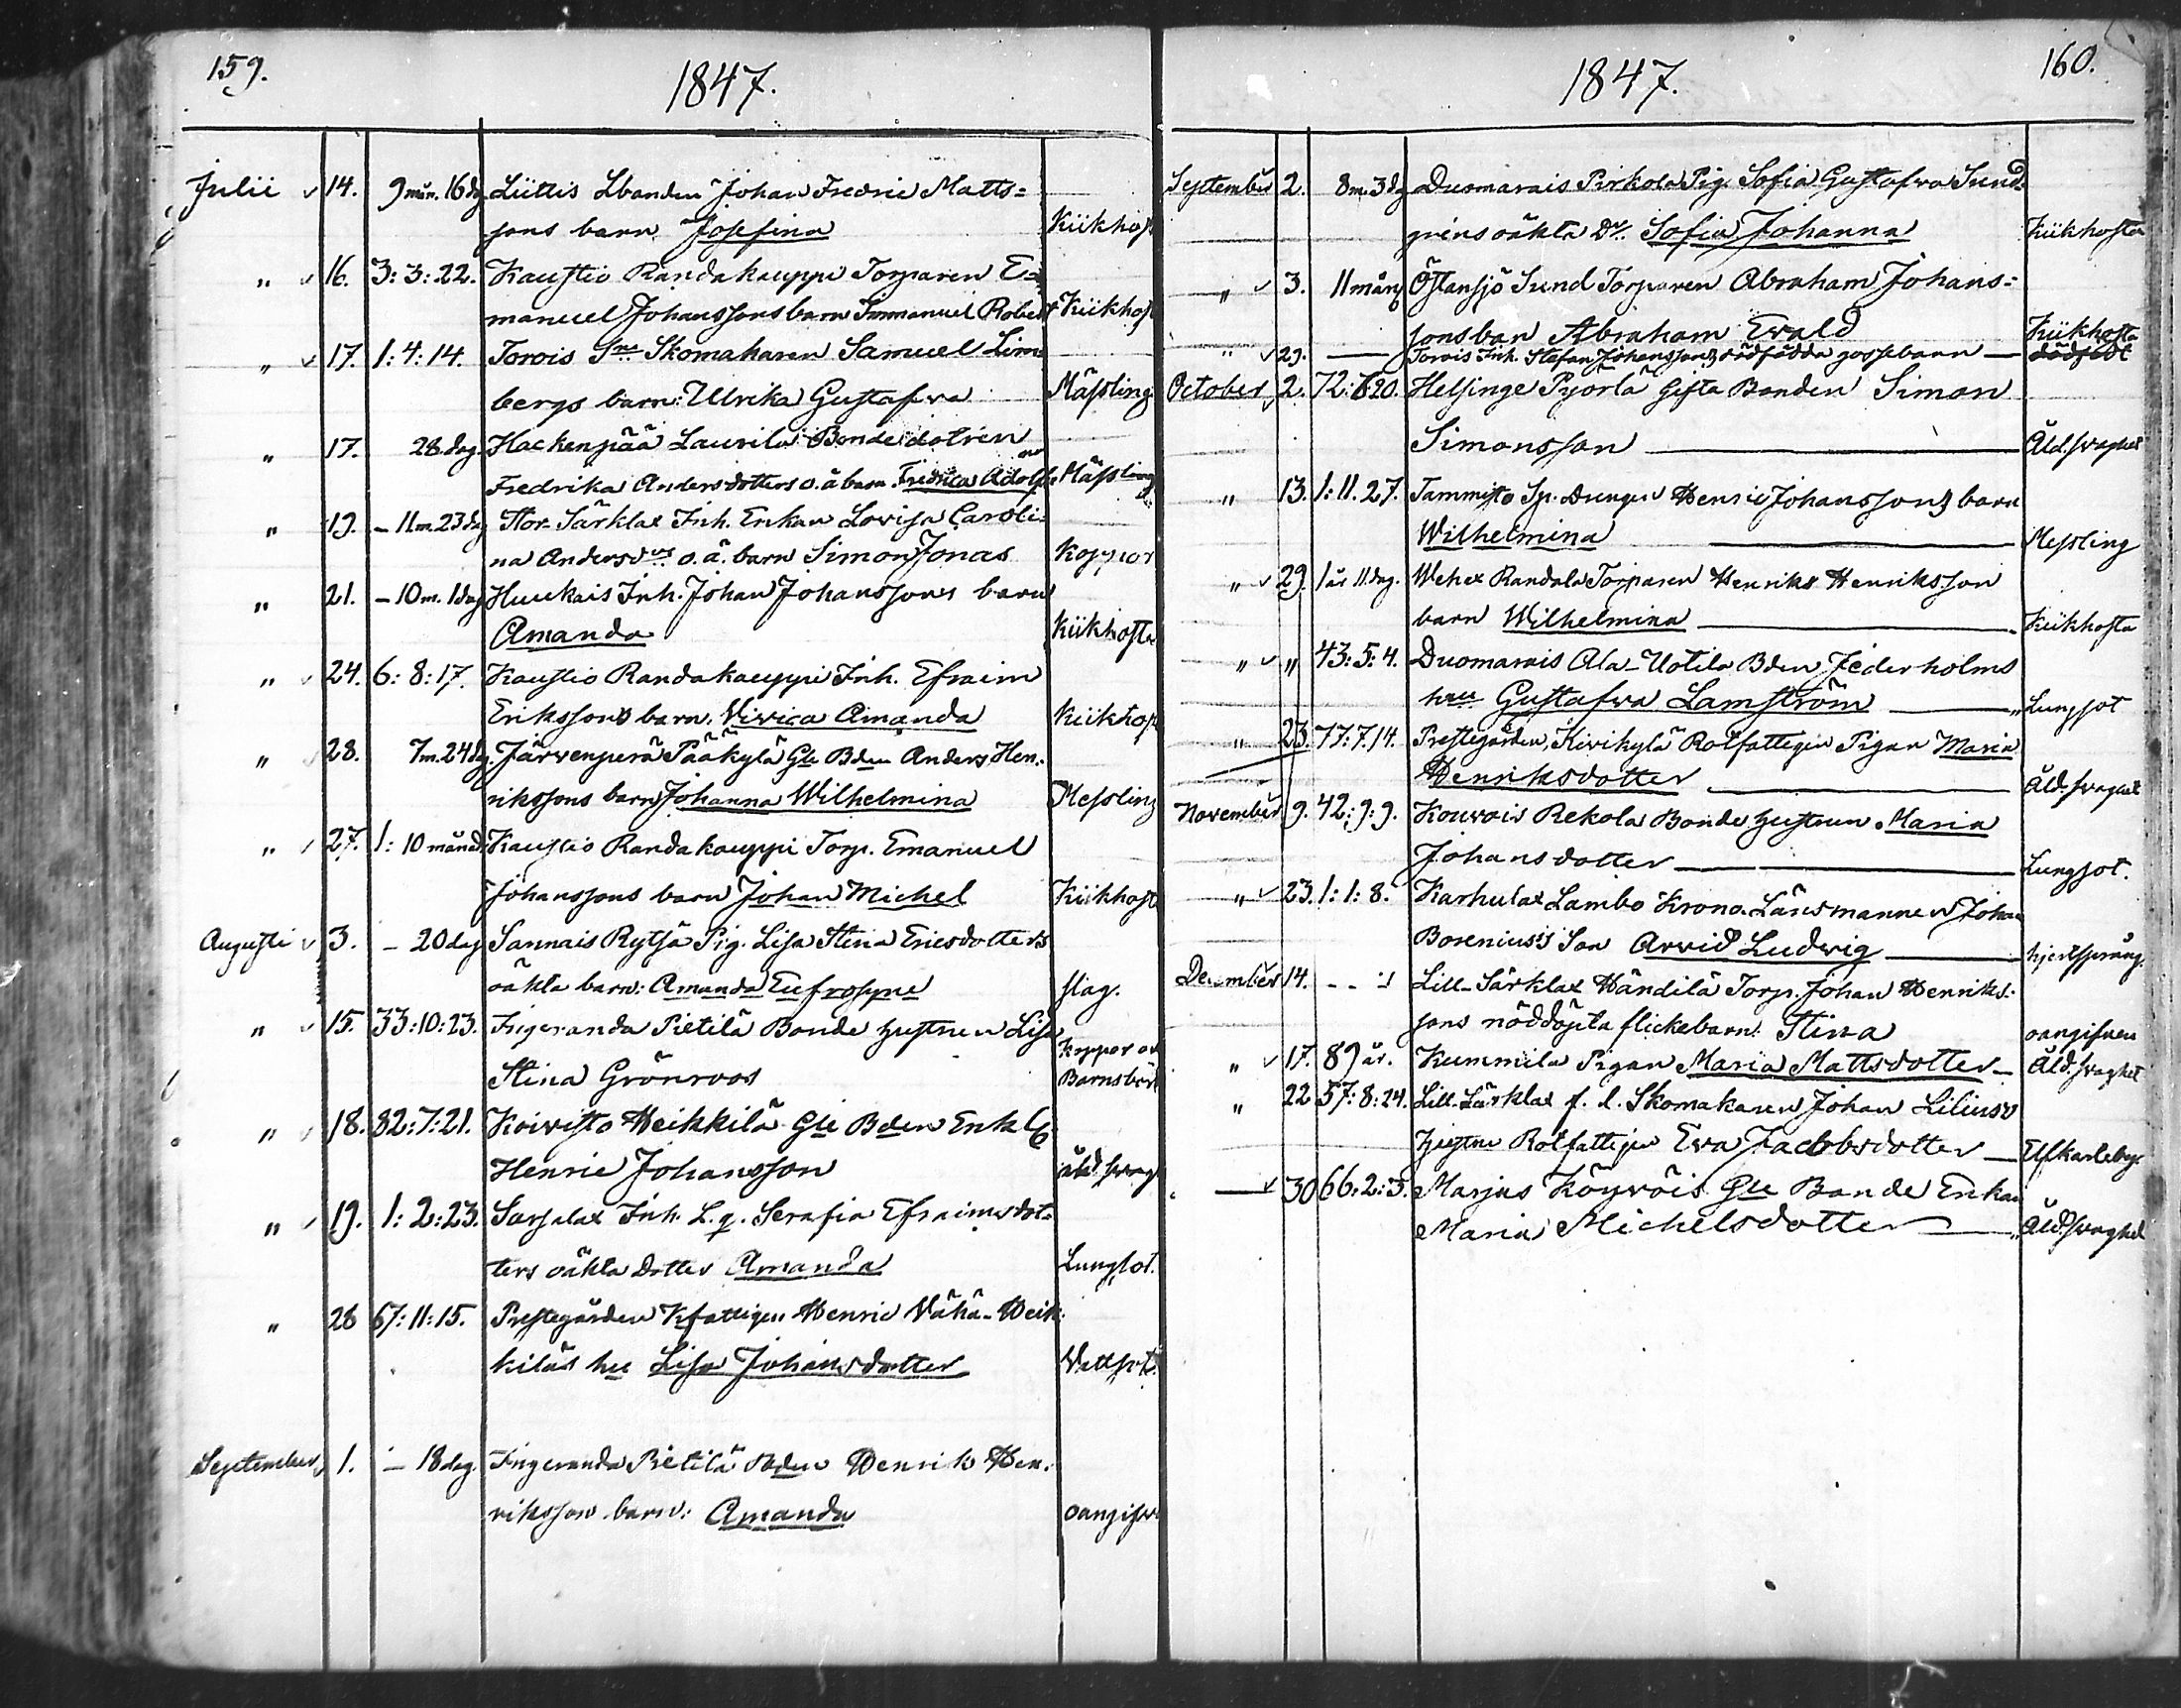 159.
1847.
Julii 14. 9 mån. 16 dg Liittis Lbonden Johan Fredric Matts=
sons barn Josefina Kiikhost
" 16. 3: 3: 22. Kaustio Randakauppi Torparen E=
manuel Johanssons barn Immanuel Robert Kiikhost
" 17. 1: 4: 14. Torois Skomakaren Samuel Lim=
bergs barn: Ulrika Gustafva Mässling
" 17. 28 dag. Hackenpää Laurila Bondedotren
Fredrika Andersdotters o.ä barn Fredrica Adolf Mässling
" 19. - 11 m. 23 dg Stor-Särklax Inh. Enkan Lovisa Caroli=
na Andersdrs o.ä. barn Simon Jonas Koppor
" 21. - 10 m. 1 dag Huukais Inh. Johan Johanssons barn
Amanda Kiikhosta
" 24. 6: 8: 17. Kaustio Randakauppi Inh. Efraim
Erikssons barn. Vivica Amanda Kiikhost
" 28. 7 m. 24 dg. Järvenperä Pääkylä Gle Bden Anders Hen=
rikssons barn Johanna Wilhelmina Messling
" 27. 1: 10 månd. Kaustio Randakauppi Torp. Emanuel
Johanssons barn Johan Michel Kiikhost
Augusti 3. - 20 dag Sannais Rytsä Pig. Lisa Stina Ericsdotters
oäkta barn: Amanda Eufrosyne slag.
" 15. 33: 10: 23. Ingeranda Pietilä Bonde hustrun Lisa Koppor o
Stina Grönroos Barnsbörd
" 18. 82: 7: 21. Koivisto Heikkilä Gle Bden Enkl
Henric Johansson åld. svag
" 19. 1: 2: 23. Sarsalax Inh. L.q. Serafia Efraimsdot=
ters oäkta dotter Amanda Lungsot.
" 28 67: 11: 15. Prestegården Kfattigen Henric Vähä-Heik=
kiläs hu Lisa Johansdotter Vattsot.
September 1. - 18 dag. Ingeranda Pietilä Bden Henrik Hen=
riksson barn: Amanda oangifven
160.
1847.
September 2. 8 m. 3 dg Duomarais Pirkola Pig. Sofia Gustafva Sund=
grens oäkta Dr. Sofia Johanna Kiikhosta
" 3. 11 mån Östansjö Sund Torparen Abraham Johans=
sons barn Abraham Evald Kiikhosta
" 29. — Torois Inh. Stefan Johanssons dödfödda gossebarn — dödfödt
October 2. 72: 6 20. Helsinge Pyörlä Gifta Bonden Simon
Simonsson Åld. svaghet
" 13. 1: 11. 27. Tammisto Sp. Drengen Henric Johanssons barn
Wilhelmina Messling
" 29. 1 år 11 dag. Wehex Randala Torparen Henriks Henriksson
barn Wilhelmina Kiikhosta
" " 43: 5: 4. Duomarais Ala-Uotila Bden Jederholms
hru Gustafva Lamström Lungsot
" 23. 77: 7. 14. Prestegården, Kirikylä Rotfattigen Pigan Maria
Henriksdotter Åld. svaghet
November 9. 42: 9: 9. Kouvois Rekola Bonde hustrun Maria
Johansdotter Lungsot.
" 23. 1: 1: 8. Karhulax Lambo Krono Länsmannen Johan
Borenius's Son Arvid Ludvig hjertsprång
December 14. - - : 1 Lill-Särklax Händilä Torp. Johan Henriks=
sons nöddöpta flickebarn: Stina oangifven
" 17. 89 år. Kummila Pigan Maria Mattsdotter Åld. svaghet
" 22 57: 8: 24. Lill-Särklax f. d. Skomakaren Johan Lilius's
hustru Rotfattigen Eva Jacobsdotter
— 30 66: 2: 3. Marjus Köyvöis Gle Bonde Enkan
Maria Michelsdotter Åld. svaghet